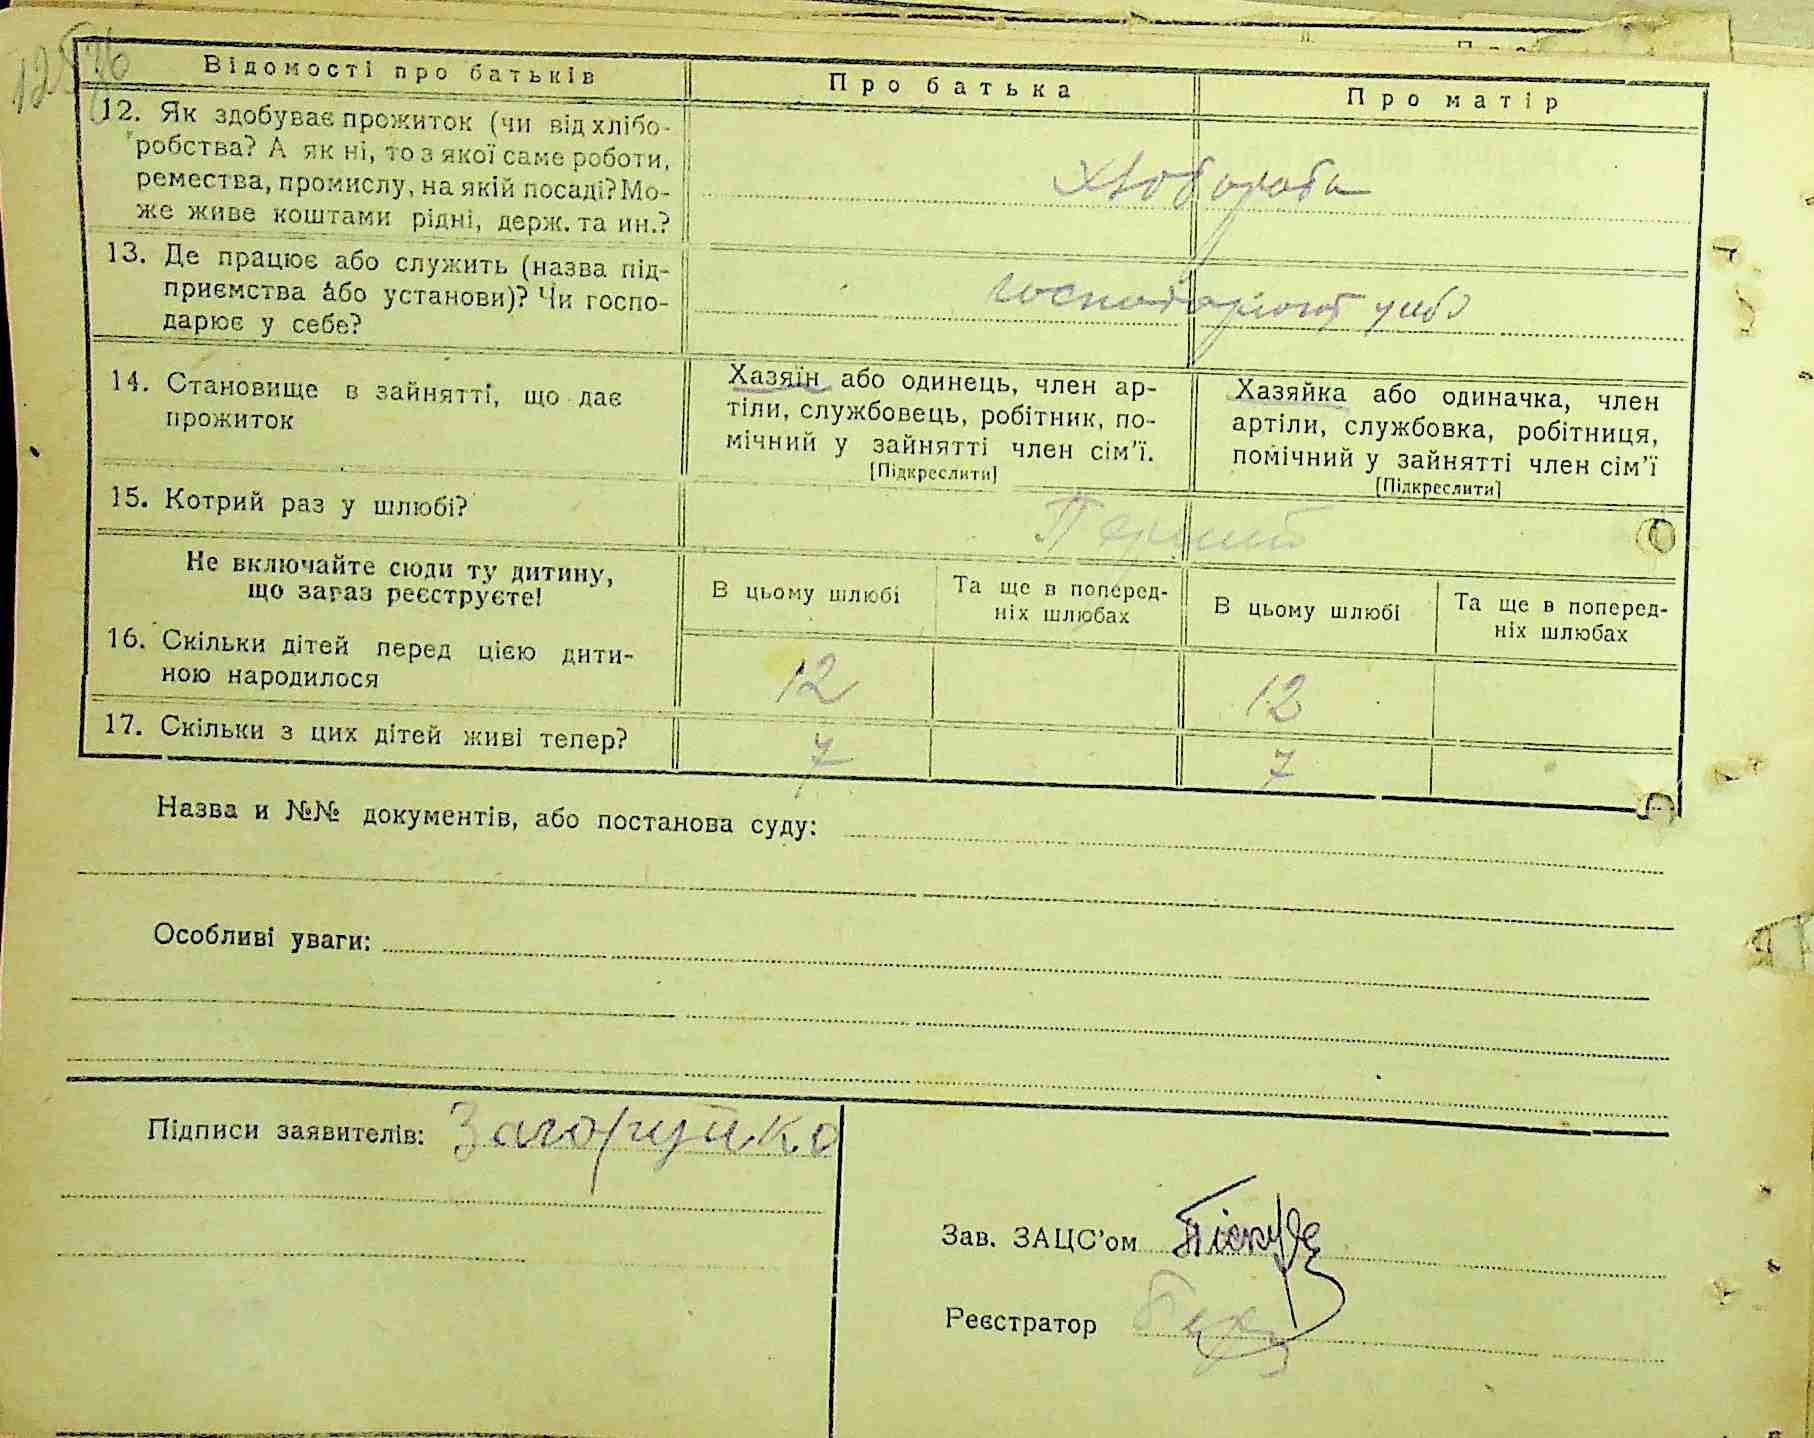 Відомості про батьків
Про батька
Про матір
12. Як здобуває прожиток (чи від хлібо-
робства? А як ні, то з якої саме роботи,
ремества, промислу, на якій посаді? Мо-
же живе коштами рідні, держ. та ин.?
хлібороби
13. Де працює або служить (назва під-
приємства або установи)? Чи госпо-
дарює у себе?
господарюють у себе
14. Становище в зайнятті, що дає
прожиток
Хазяїн або одинець, член ар-
тіли, службовець, робітник, по-
мічний у зайнятті член сім'ї.
[Підкреслити]
Хазяйка або одиначка, член
артіли, службовка, робітниця,
помічний у зайнятті член сім'ї
[Підкреслити]
15. Котрий раз у шлюбі?
Перший
Не включайте сюди ту дитину,
що зараз реєструєте!
В цьому шлюбі
Та ще в поперед-
ніх шлюбах
В цьому шлюбі
Та ще в поперед-
ніх шлюбах
16. Скільки дітей перед цією дити-
ною народилося
12
12
17. Скільки з цих дітей живі тепер?
7
7
Назва и №№ документів, або постанова суду:
Особливі уваги:
Підписи заявителів: Загоруйко
Зав. ЗАЦС'ом
Реєстратор